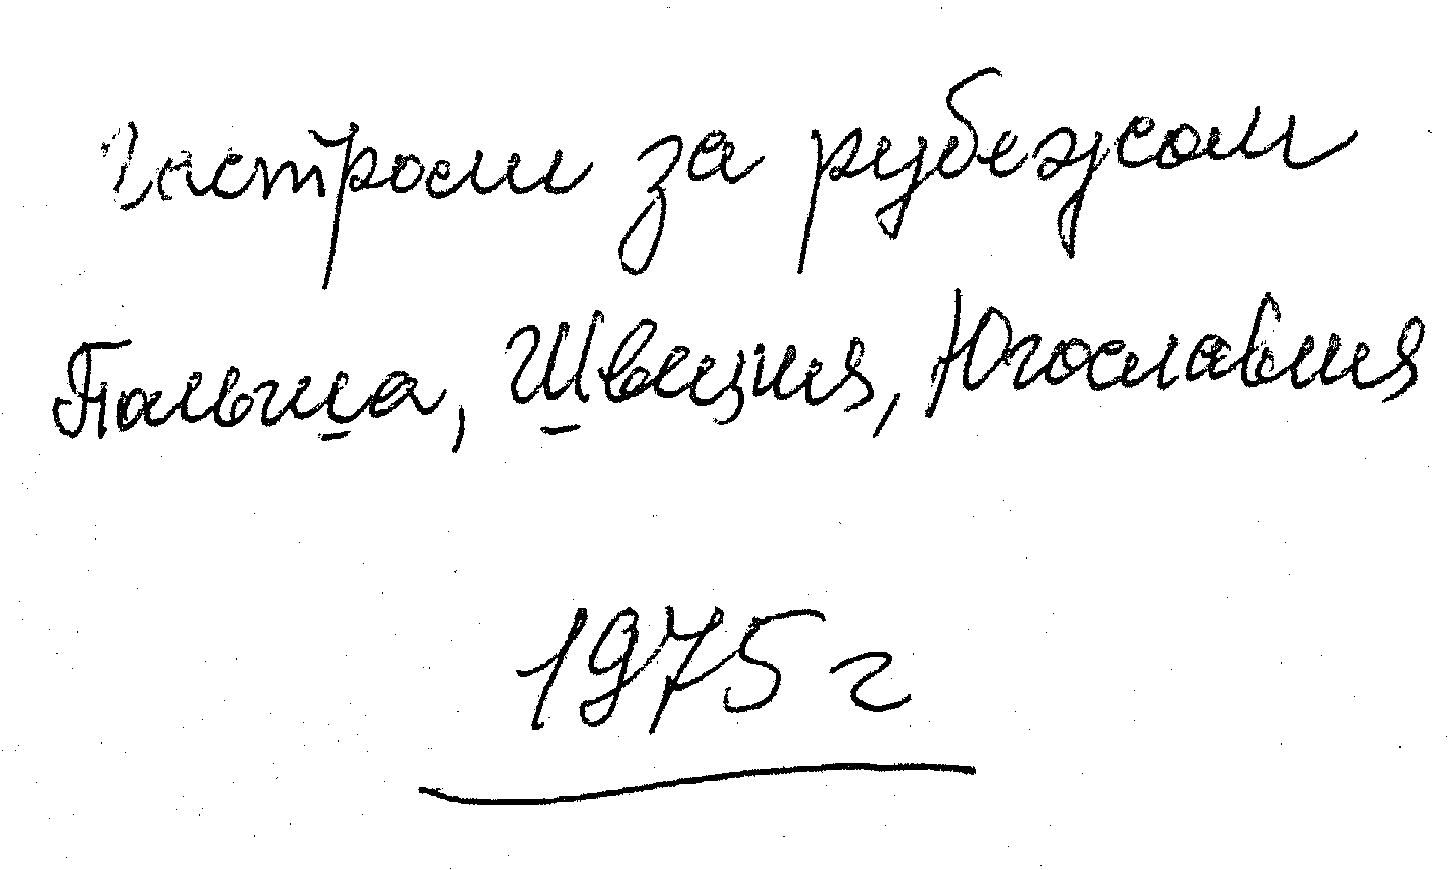 Гастроли за рубежом
Польша, Швеция, Югославия
1975 г